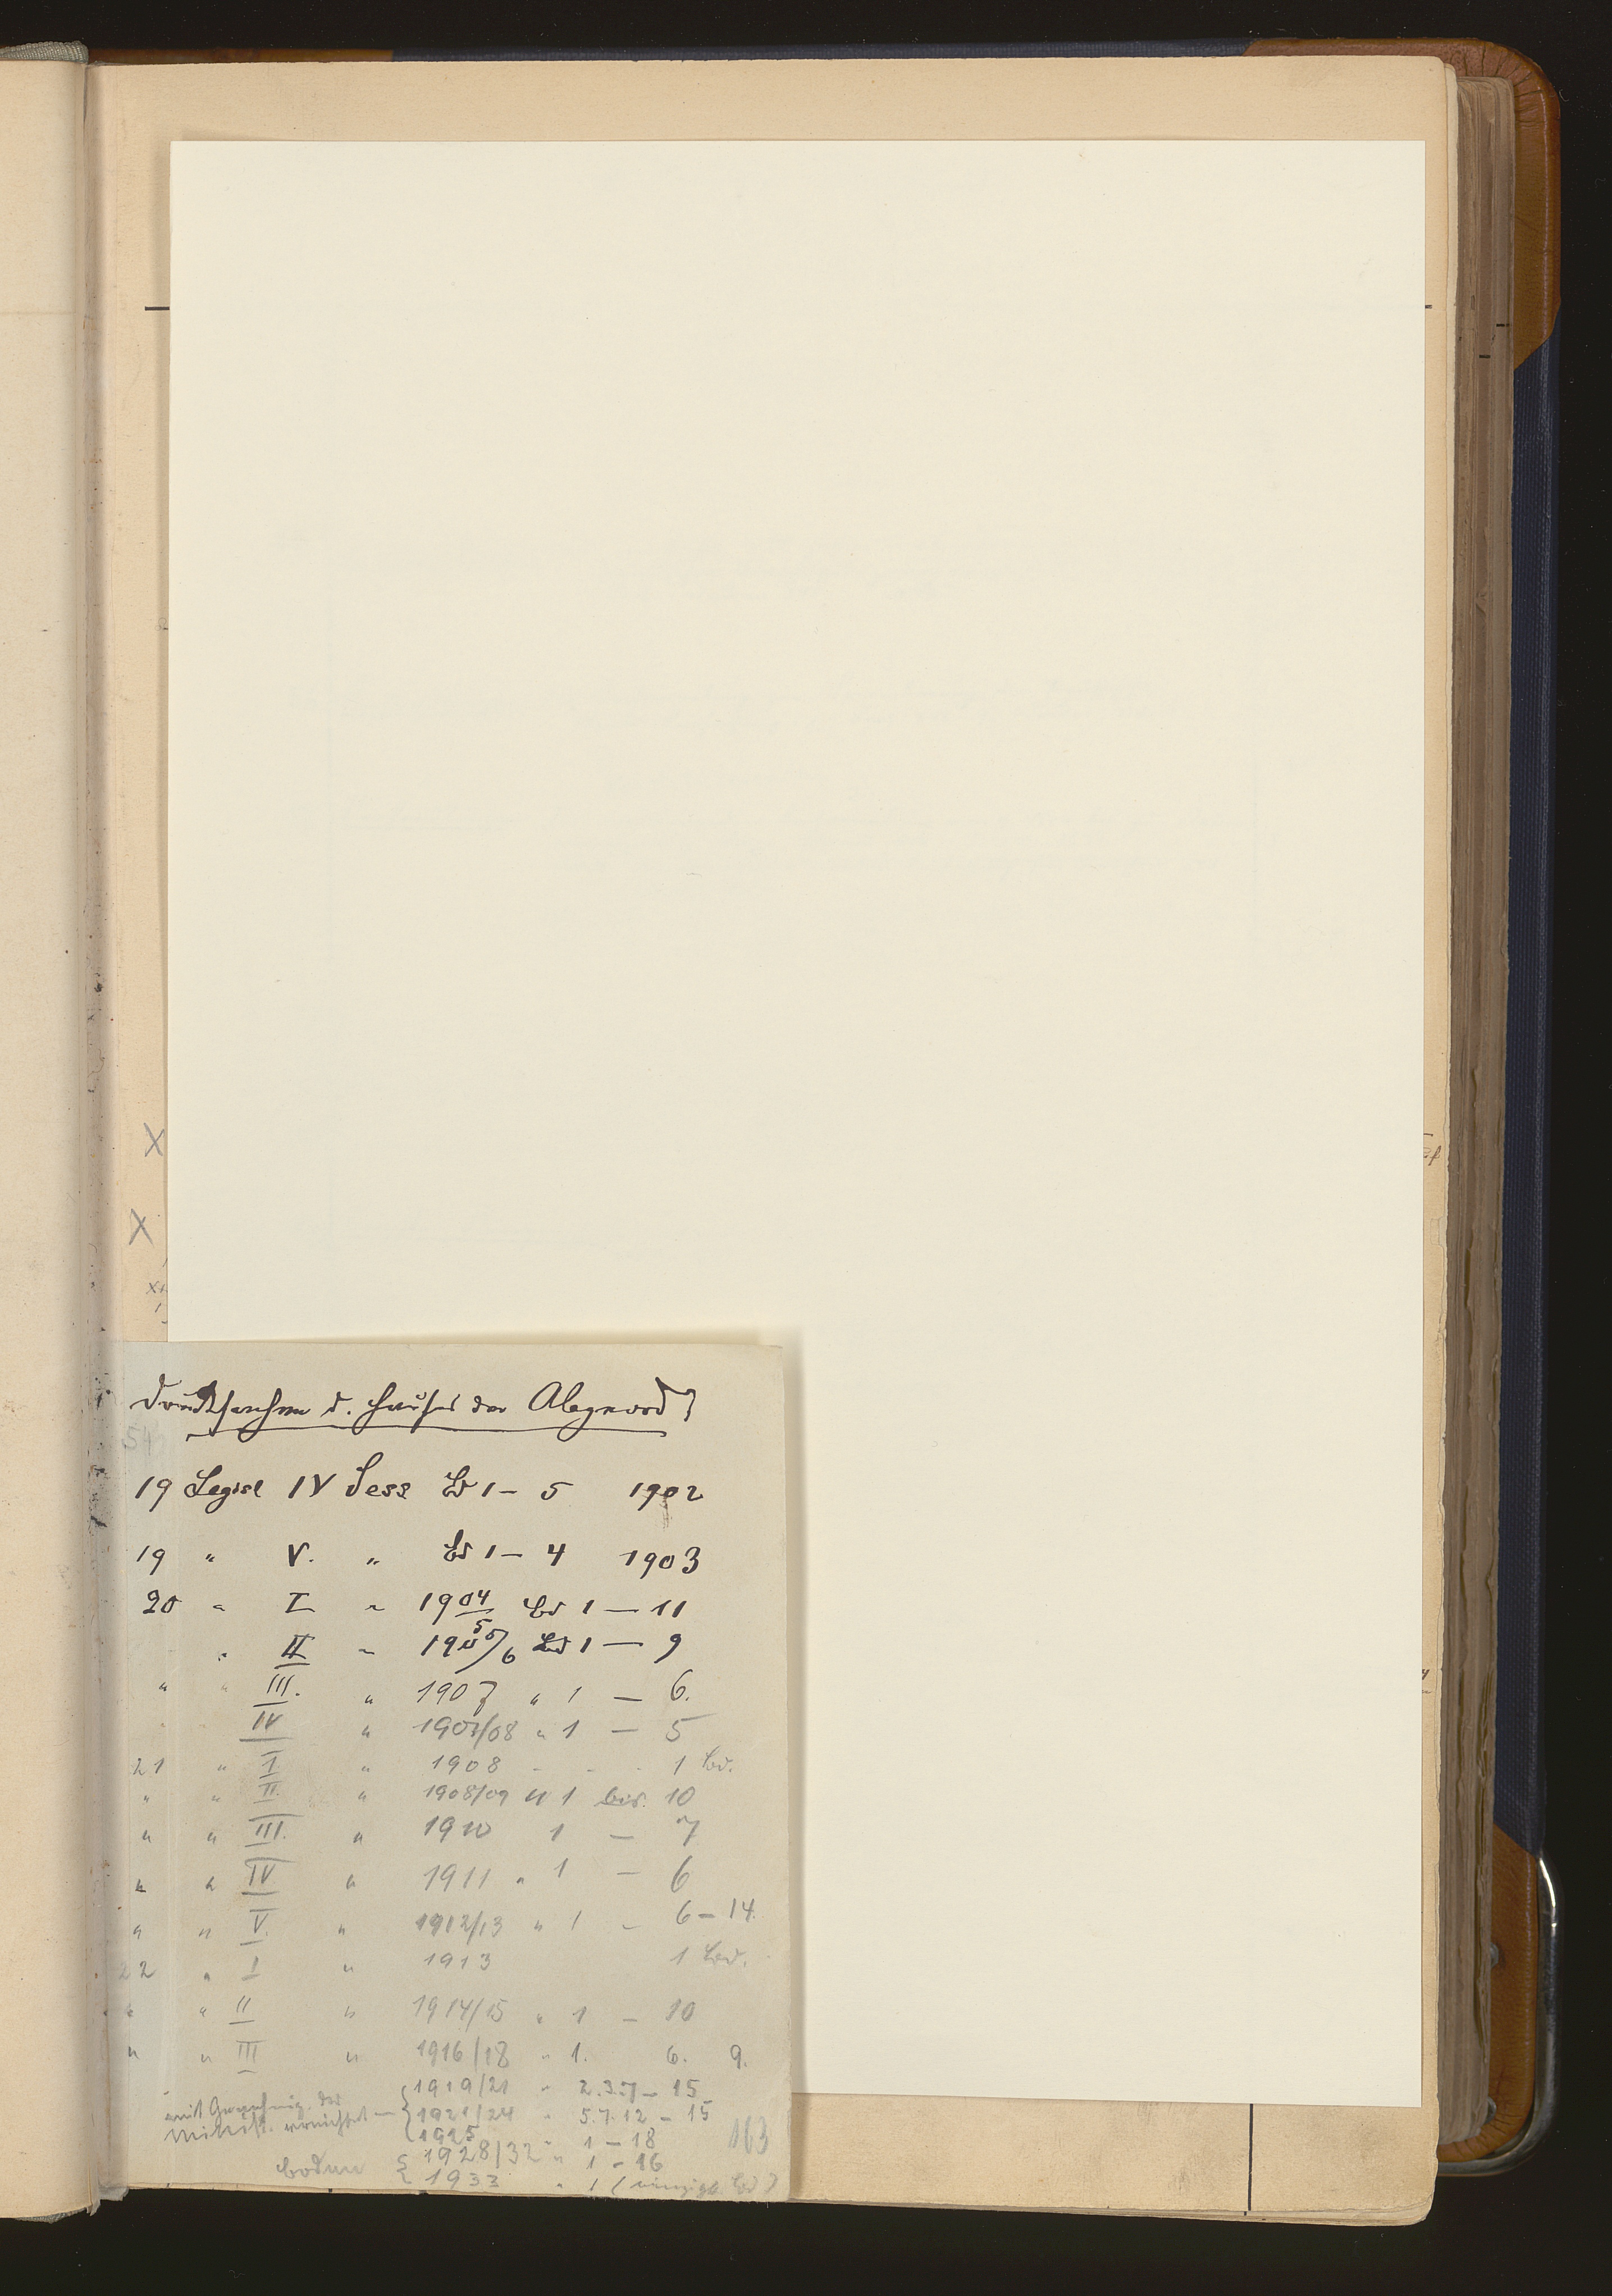 X
X
Drucksachen d. Hauses der Abgeord
54
19 Legisl IV Sess Bd 1 – 5 1902
19 " V. " Bd 1 – 4 1903
20 " I " 1904/5 Bd 1 – 11
" II " 1905/6 Bd 1 – 9
" " III. " 1907 " 1 – 6.
" " IV " 1907/08 " 1 – 5
21 " I " 1908 - - - 1 Bd.
" " II. " 1908/09 " 1 bis 10
" " III. " 1910 1 – 7
" " IV " 1911 " 1 – 6
" " V. " 1912/13 " 1 – 6 – 14.
22 " I " 1913 1 Bd.
" " II " 1914/15 " 1 – 10
" " III " 1916/18 " 1. 6. 9.
{ 1919/21 " 2.3.7 – 15
mit Genehmig. des
Minist. vernichtet – 1921/24 " 5.7.12 – 15
1925 " 1 – 18
163
Boden { 1928/32 " 1 – 16
1933 " 1 (einziger Bd)